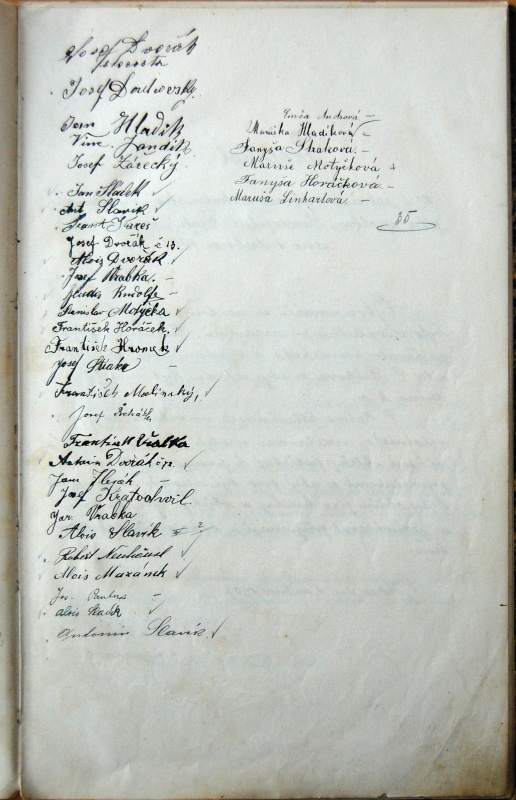 Josef Dvořák
starosta
Josef
Jan Hladík
Vinc. Jandík
Josef Zářecký
Jan Sládek
Ant. Slavík
Frant.
Josef Dvořák č 13.
Alois Dvořák
Josef Vrabka
Rudolf
Stanislav Motyčka
František Horáček
František
Josef
František Malinský,
Josef
František Vrabka
Antonín Dvořák
Jan
Josef Kratochvil
Jar. Vrabka
Alois Slavík II ?
Robert
Alois Mazánek
Jos.
Alois
Antonín Slavík
Andrová
Maruška Hladíková
Fanyša
Marnie Motyčková
Fanyša Horáčková
Maruša Linhartová
35